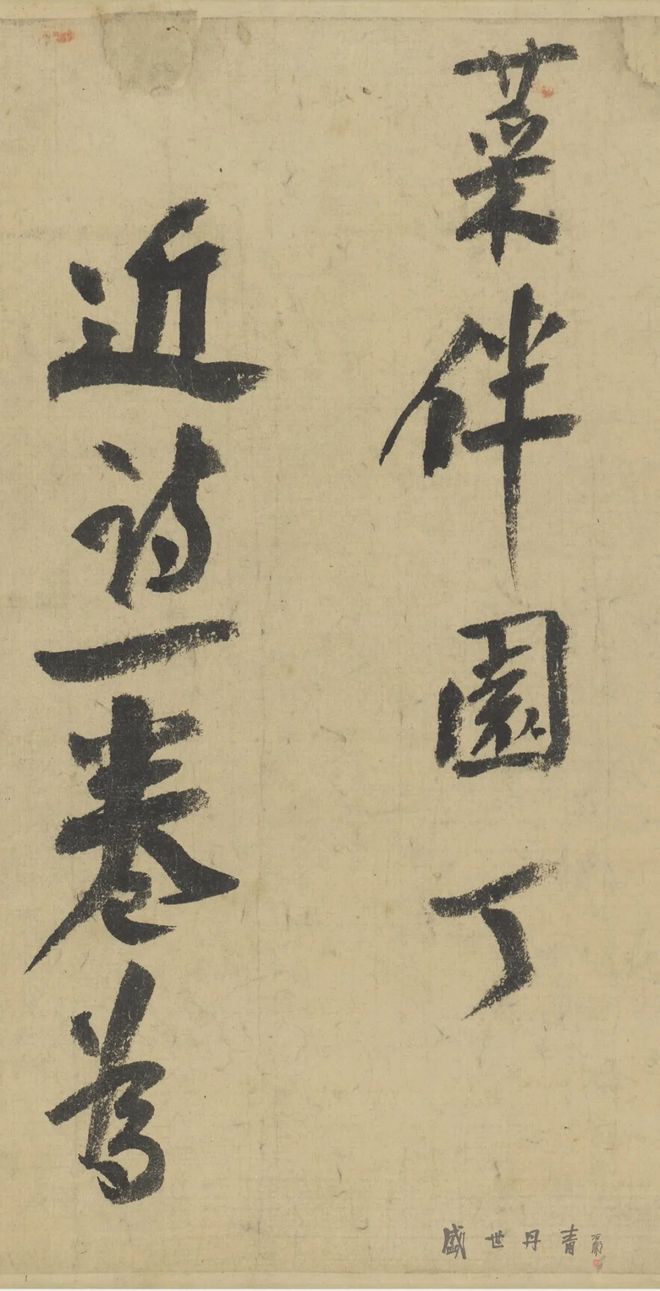 菜伴園丁
近詩一卷為
盛世丹青